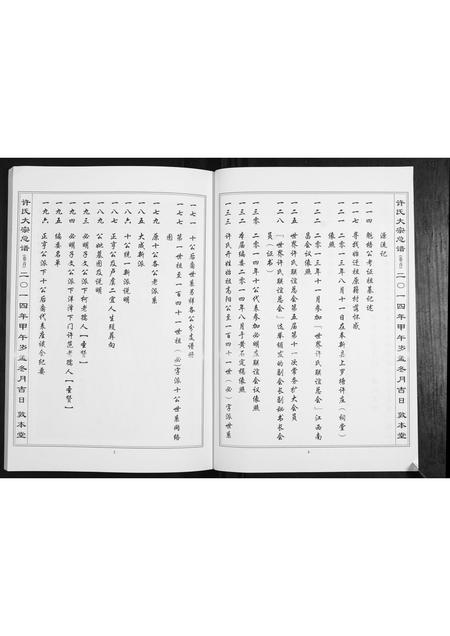 许氏大宗总谱 二〇一四年甲午岁孟冬月吉日 敦本堂
源流记
一一四 魁梧公考证祖墓记述
一一七 寻找始迁祖原籍村篇怀感
一二一 二〇一三年八月十一日在奉新县上罗塘许庄（祠堂）
依照
一二二 二〇一三年十一月参加「世界许氏联谊总会」江西南
昌会议依照
一二五 世界许氏联谊总会第五届第十一次常务扩大会员
一二八 「世界许氏联谊总会」选举颁发的副会长副秘书长会
员（证书）
一三〇 二〇一四年十公代表参加必明友联谊会议依照
一三二 本届编委二〇一四年八月于黄石定稿依照
一三三 许氏开姓始祖高阳公至一百四十一世（必）字派世系
一七一 十公后裔世系书样各公分支谱册
一七七 第一世祖至一百四十一世祖（必）字派十公世系网络
图
一七九 原十公各公老派系
一八五 大成新派
一八六 十公统一新派说明
一八七 正亨公及卢虞二宜人生殁葬向
一八九 公妣墓图及说明
一九三 必明子文公派下柯老孺人【垂贤】
一九四 必明子文公派下洋潭下门许范老孺人【垂贤】
一九五 编委名单
一九六 正亨公派下十公后裔代表座谈会纪要
许氏大宗总谱 二〇一四年甲午岁孟冬月吉日 敦本堂